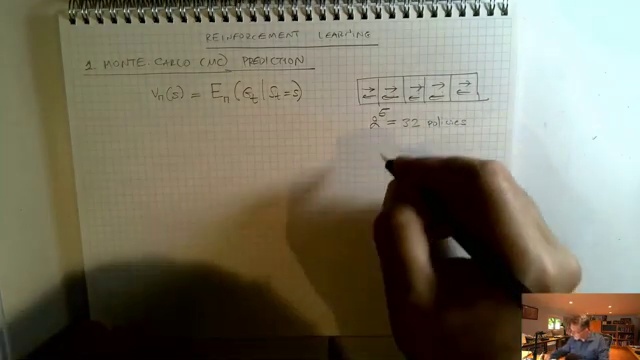 REINFORCEMENT LEARNING
1 MONTE CARLO (MC) PREDICTION
Vπ(s) = Eπ(Gt | St = s)
2^5 = 32 policies